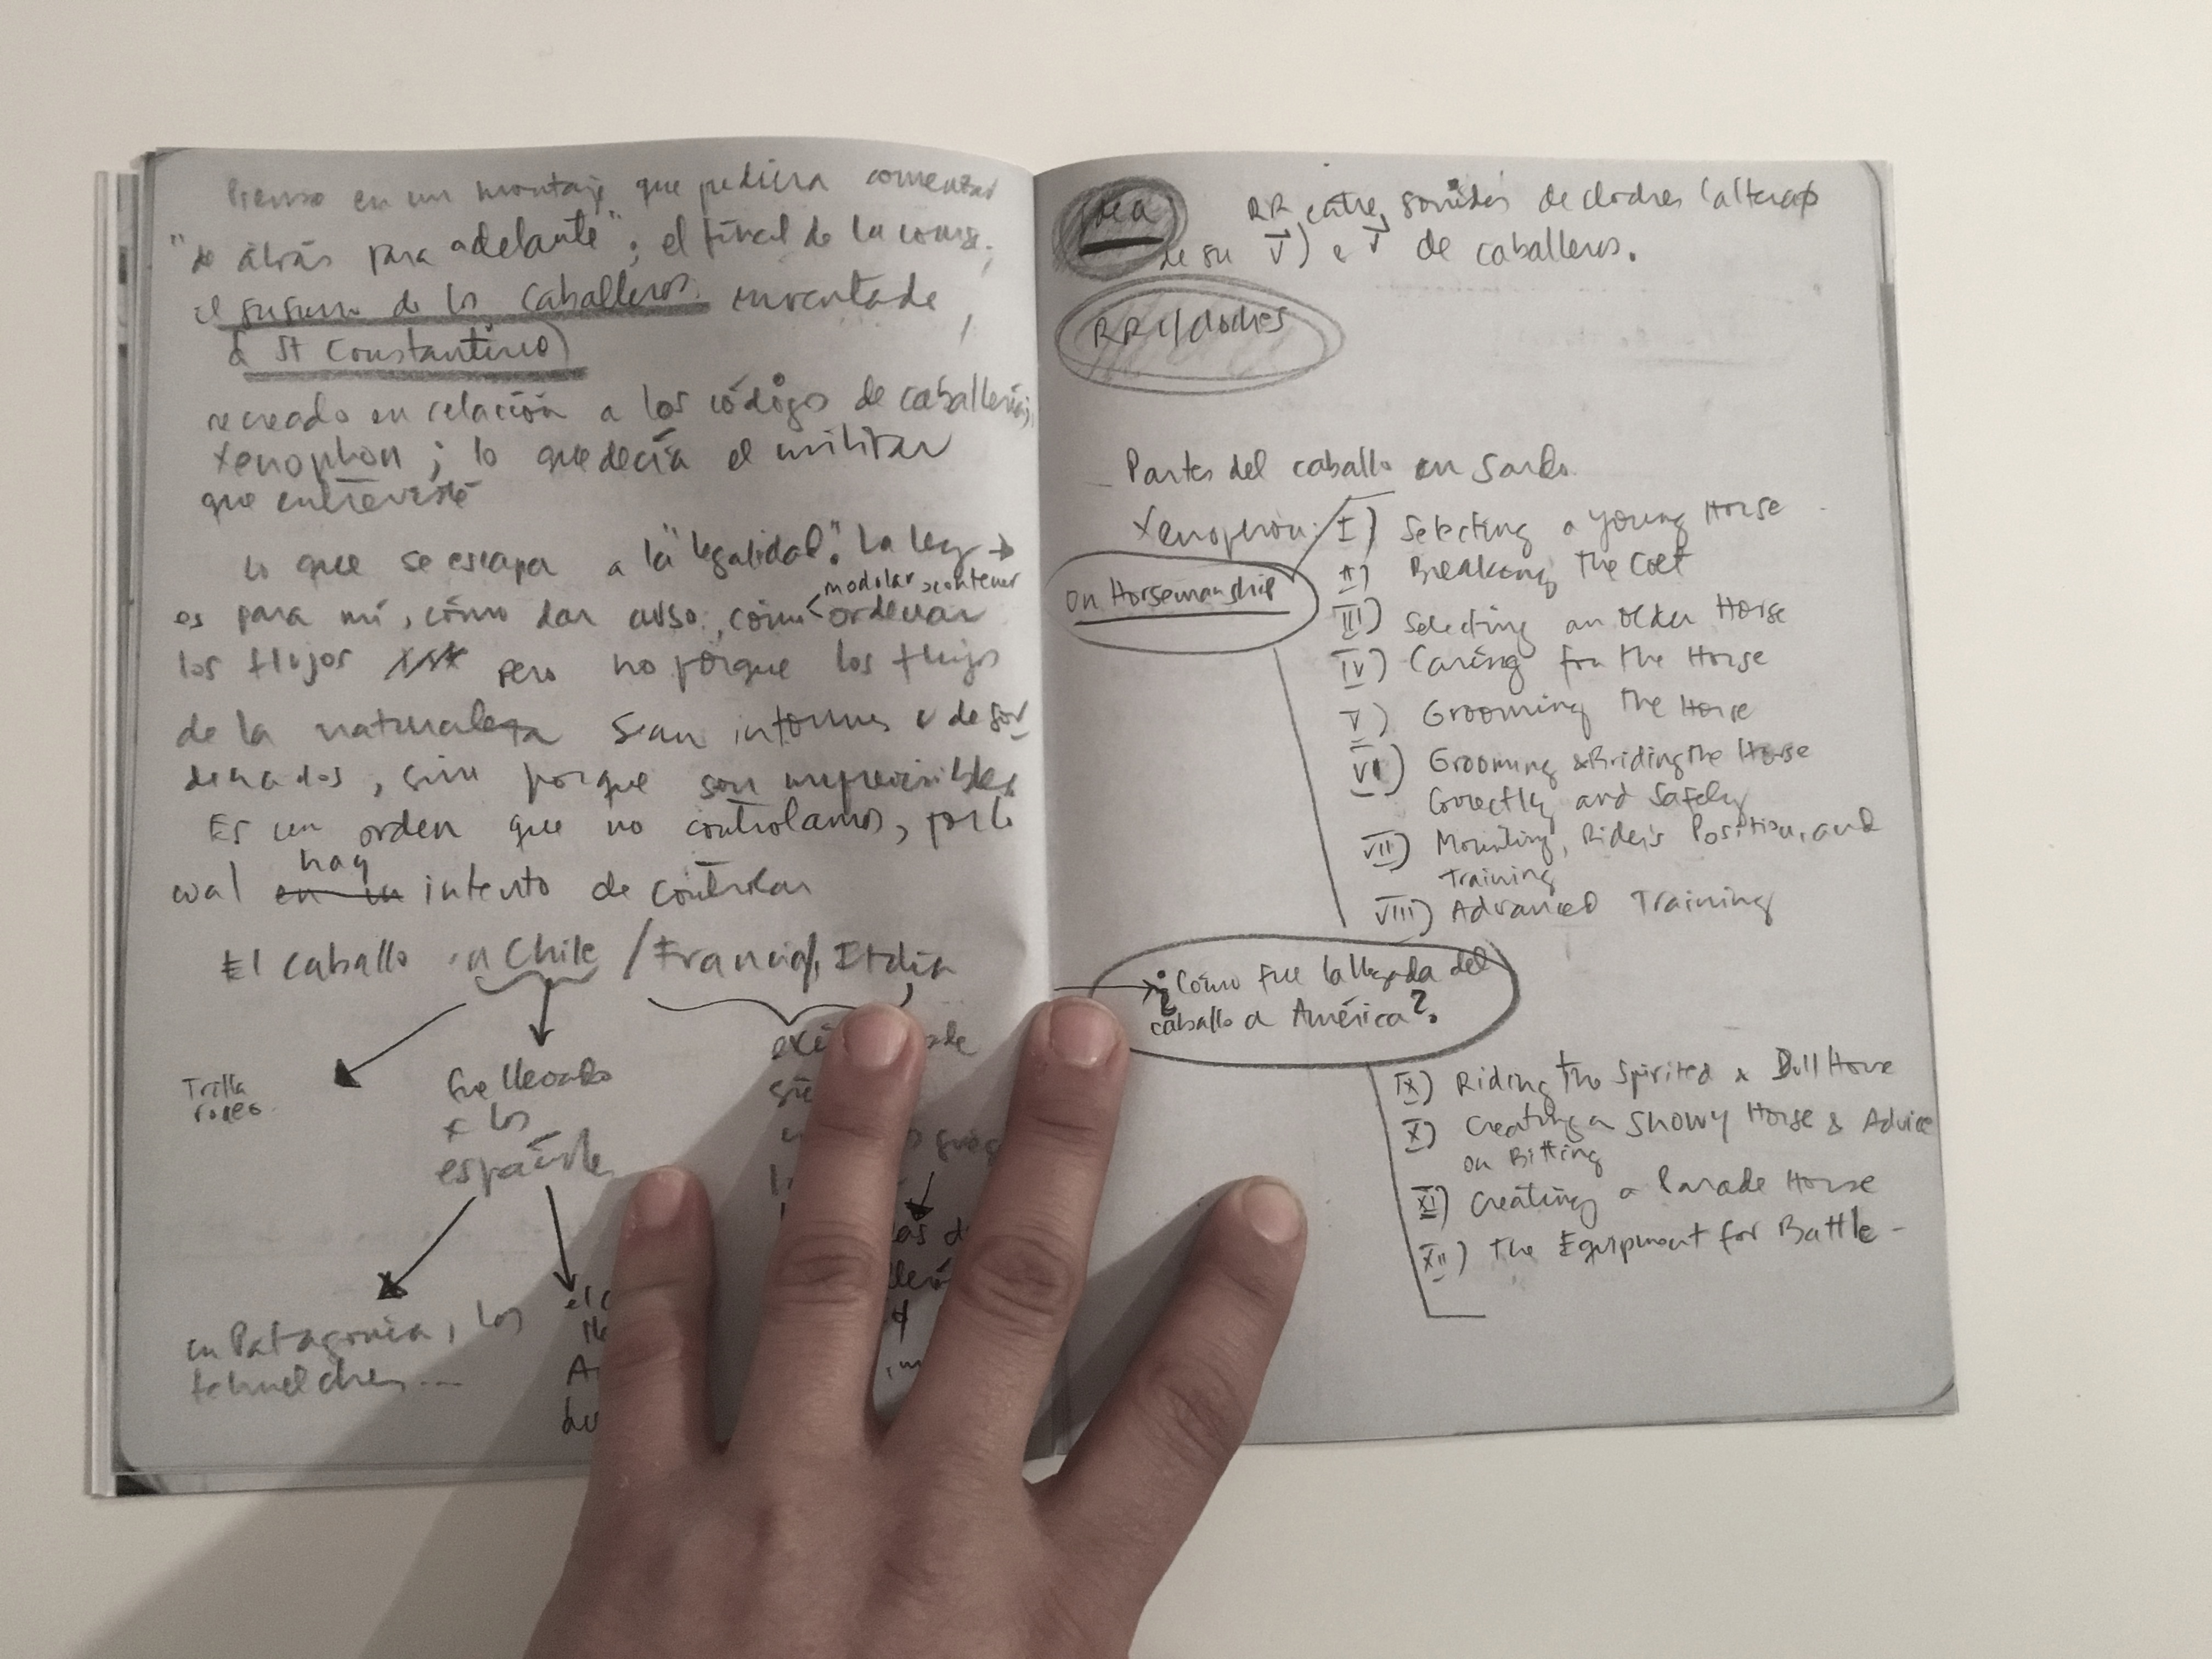 Pienso en un montaje que pudiera comenzar
"de atrás para adelante"; el final de la
el susurro de los caballeros
St Constantino)
recreado en relación a los códigos de caballería;
Xenophon; lo que decía el militar
que entrevisté
Lo que se escapa a la "legalidad". La ley →
modular contener
es para mí, cómo dar curso, cómo < ordenar
los flujos pero no porque los flujos
de la naturaleza sean informes y desor
denados, sino porque son imprevisibles
Es un orden que no controlamos, por lo
hay
cual intento de controlar
El caballo en Chile / Francia, Italia
Trilla
rodeo
fue llevado
x los
españoles
en Patagonia, los
tehuelches...
Idea
RR entre sonidos de cloches (alterap
de su V) e V de caballeros.
RR c/ cloches
Partes del caballo en Sardo.
Xenophon:
On Horsemanship
I) Selecting a young Horse
II) Breaking the Colt
III) Selecting an older Horse
IV) Caring for the Horse
V) Grooming the Horse
VI) Grooming & Briding the Horse
Correctly and Safely
VII) Mounting, Rider's Position, and
Training
VIII) Advanced Training
¿Cómo fue la llegada del
caballo a América?
IX) Riding the Spirited & Dull Horse
X) Creating a Showy Horse & Advice
on Bitting
XI) Creating a Parade Horse
XII) The Equipment for Battle -